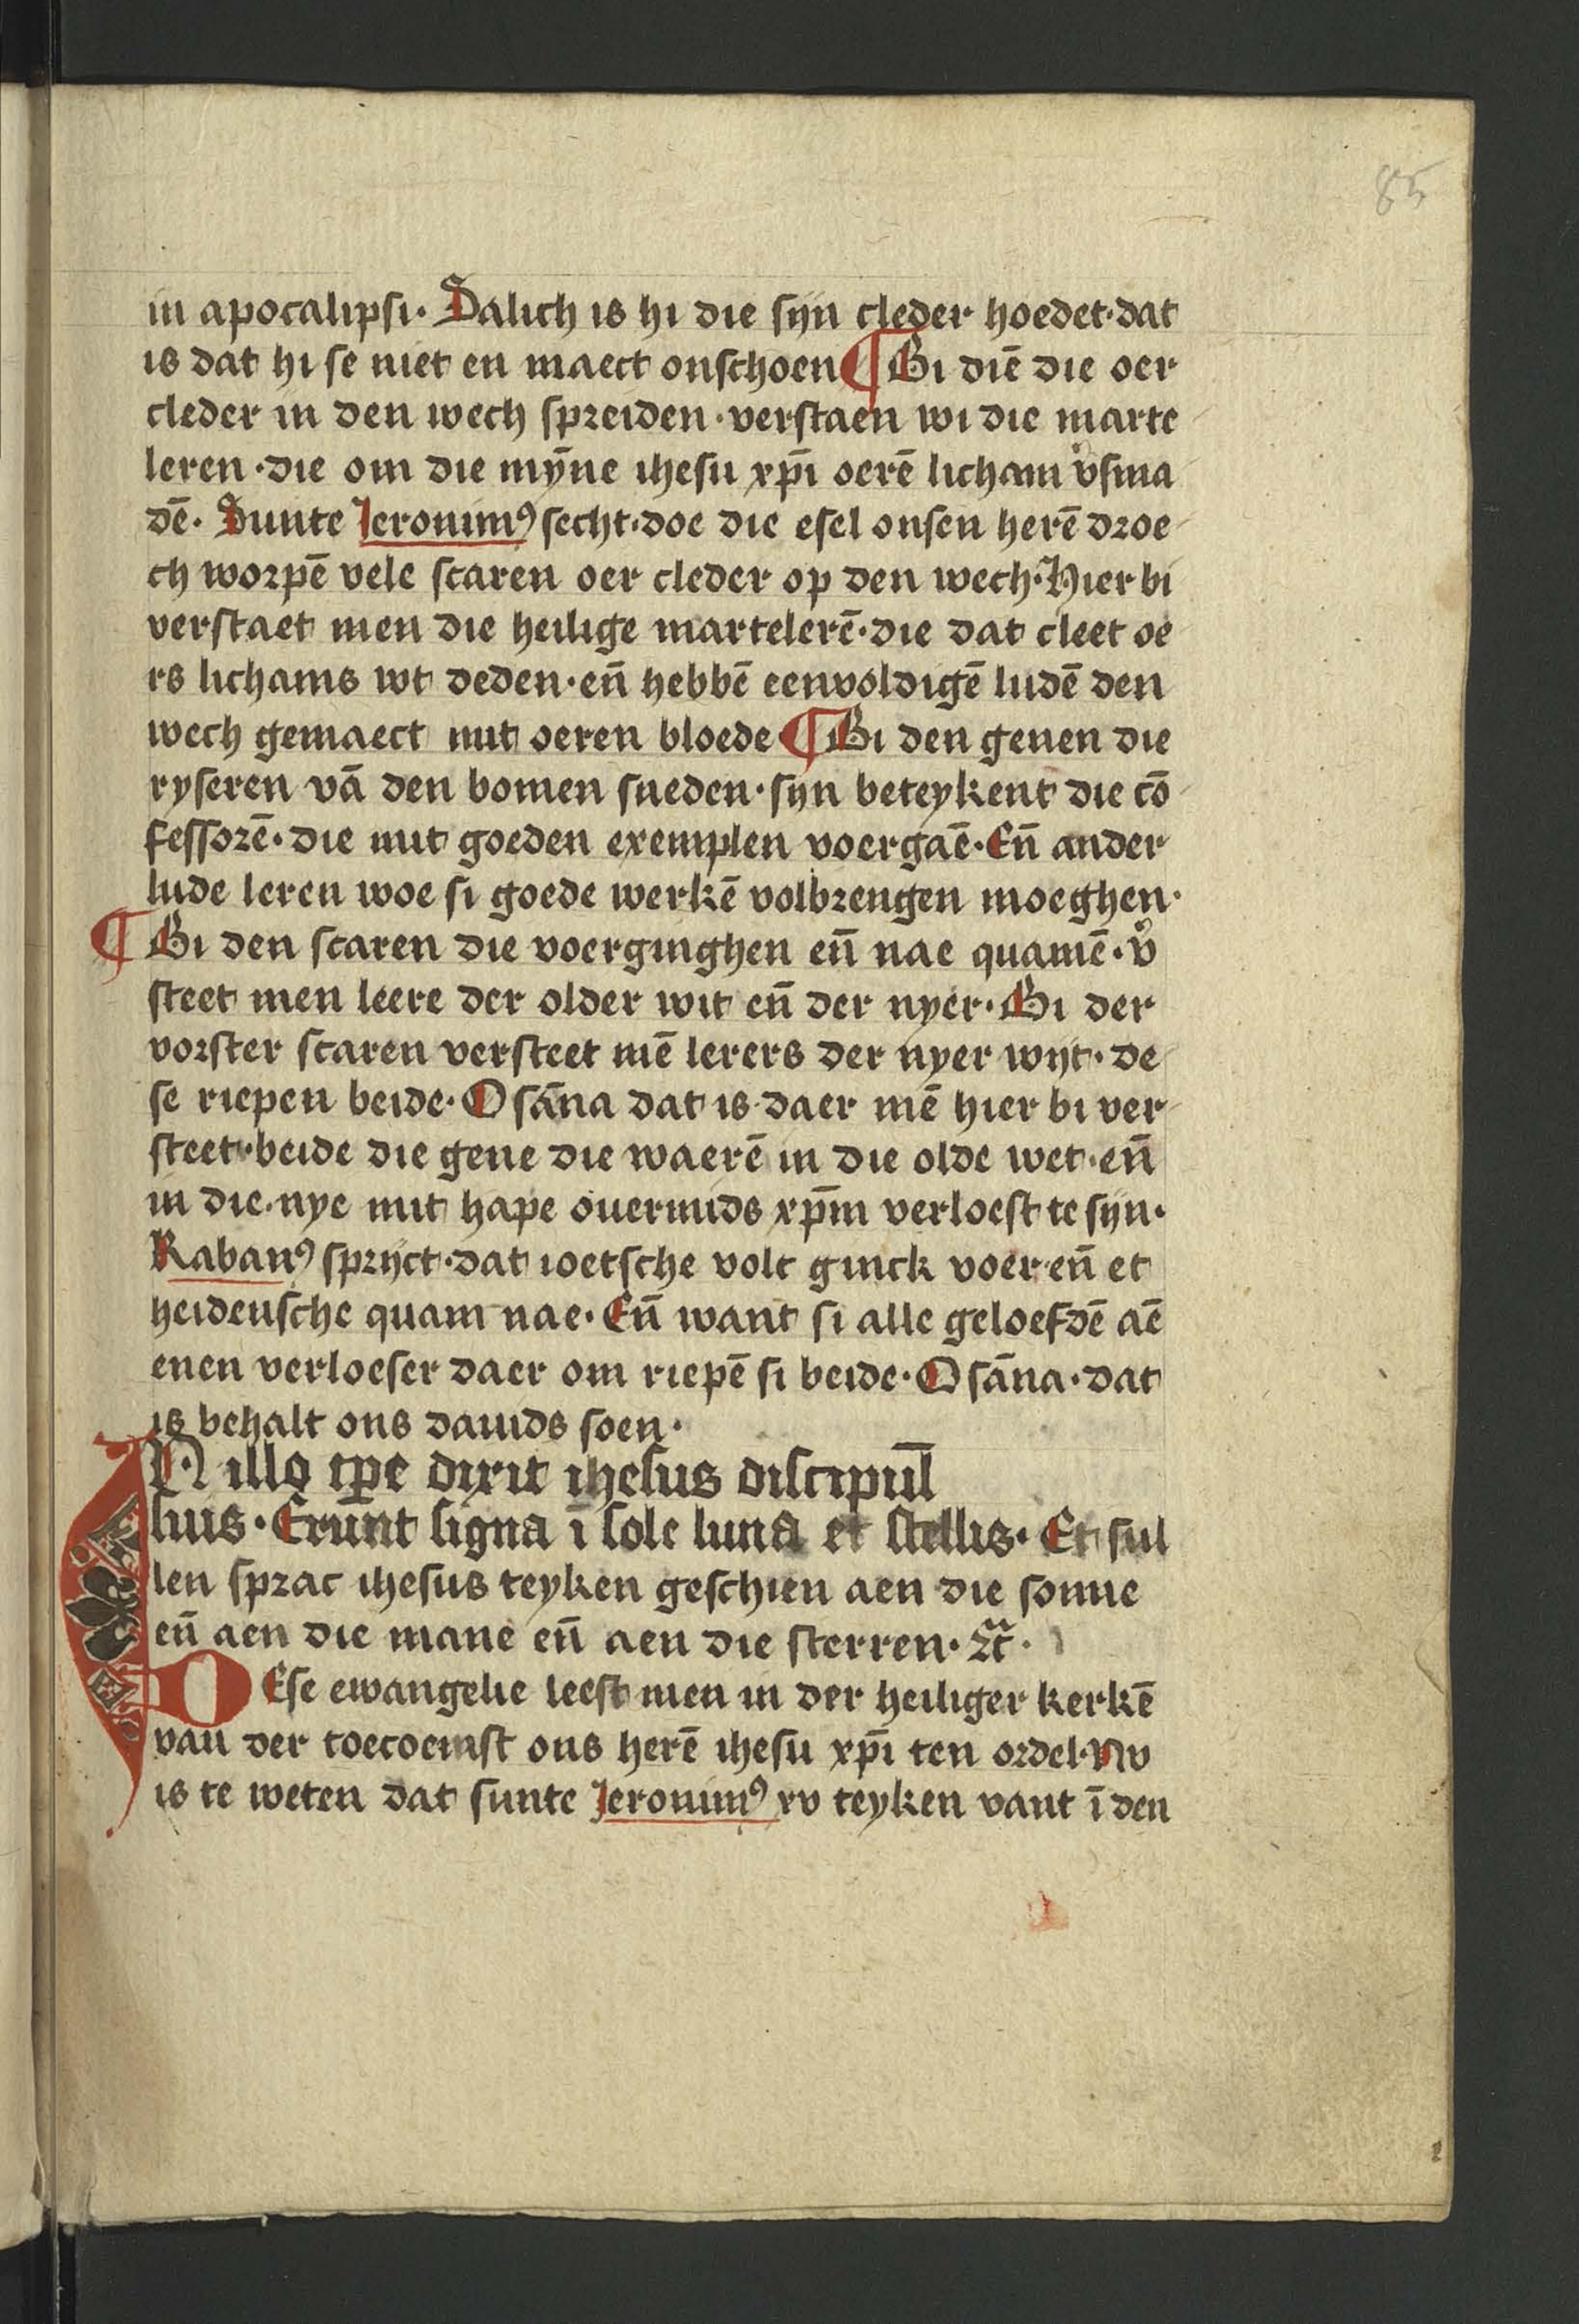 85
in apocalipsi· Salich is hi die sijn cleder hoedet·dat
is dat hi se niet en maect onschoen ¶ Bi diē die oer
cleder in den wech spreiden·verstaen wi die marte
leren·die om die mȳne ihesu xp̄i oerē licham v͛sma
dē· Sunte Jeronimꝰ secht·doe die esel onsen herē droe
ch worpē vele scaren oer cleder op den wech·Hier bi
verstaet men die heilige martelerē·die dat cleet oe
rs lichams wt deden·en̄ hebbē eenvoldigē ludē den
wech gemaect mit oeren bloede ¶ Bi den genen die
ryseren vā den bomen sneden·sijn beteykent die cō
fessorē·die mit goeden exemplen voergaē·En̄ ander
lude leren woe si goede werkē volbrengen moeghen·
¶ Bi den scaren die voerginghen en̄ nae quamē·v͛
steet men leere der older wit en̄ der nyer·Bi der
vorster scaren versteet mē lerers der nyer wijt·de
se riepen beide·Osāna dat is·daer mē hier bi ver
steet·beide die gene die waerē in die olde wet·en̄
in die·nye mit hape ouermids xp̄m verloest te sijn·
Rabanꝰ sprijct·dat ioetsche volc ginck voer·en̄ et
heidensche quam nae·En̄ want si alle geloefdē aē
enen verloeser daer om riepē si beide·Osāna·dat
is behalt ons dauids soen·
IN illo tp̄e dixit ihesus discipul̄
luis·Erūnt signa ī sole luna et stellis·Et sul
len sprac ihesus teyken geschien aen die sonne
en̄ aen die mane en̄ aen die sterren·⁊c̄·
DEse ewangelie leest men in der heiliger kerkē
van der toecoemst ons herē ihesu xp̄i ten ordel·Nv
is te weten dat sunte Jeronimꝰ xv teyken vant ī den